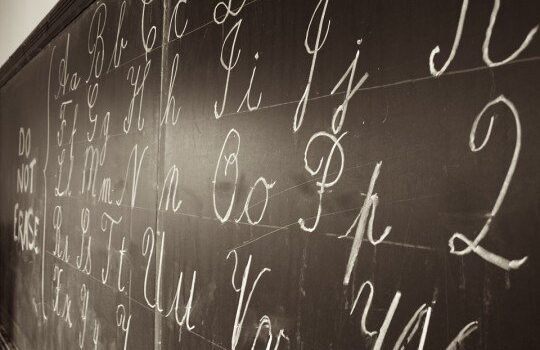 DO
NOT
ERASE
Aa Bb C c
Ff Gg H h I i J j
Ll Mm N n O o P p Q
Rr Ss Tt U u V v
Xx Yy